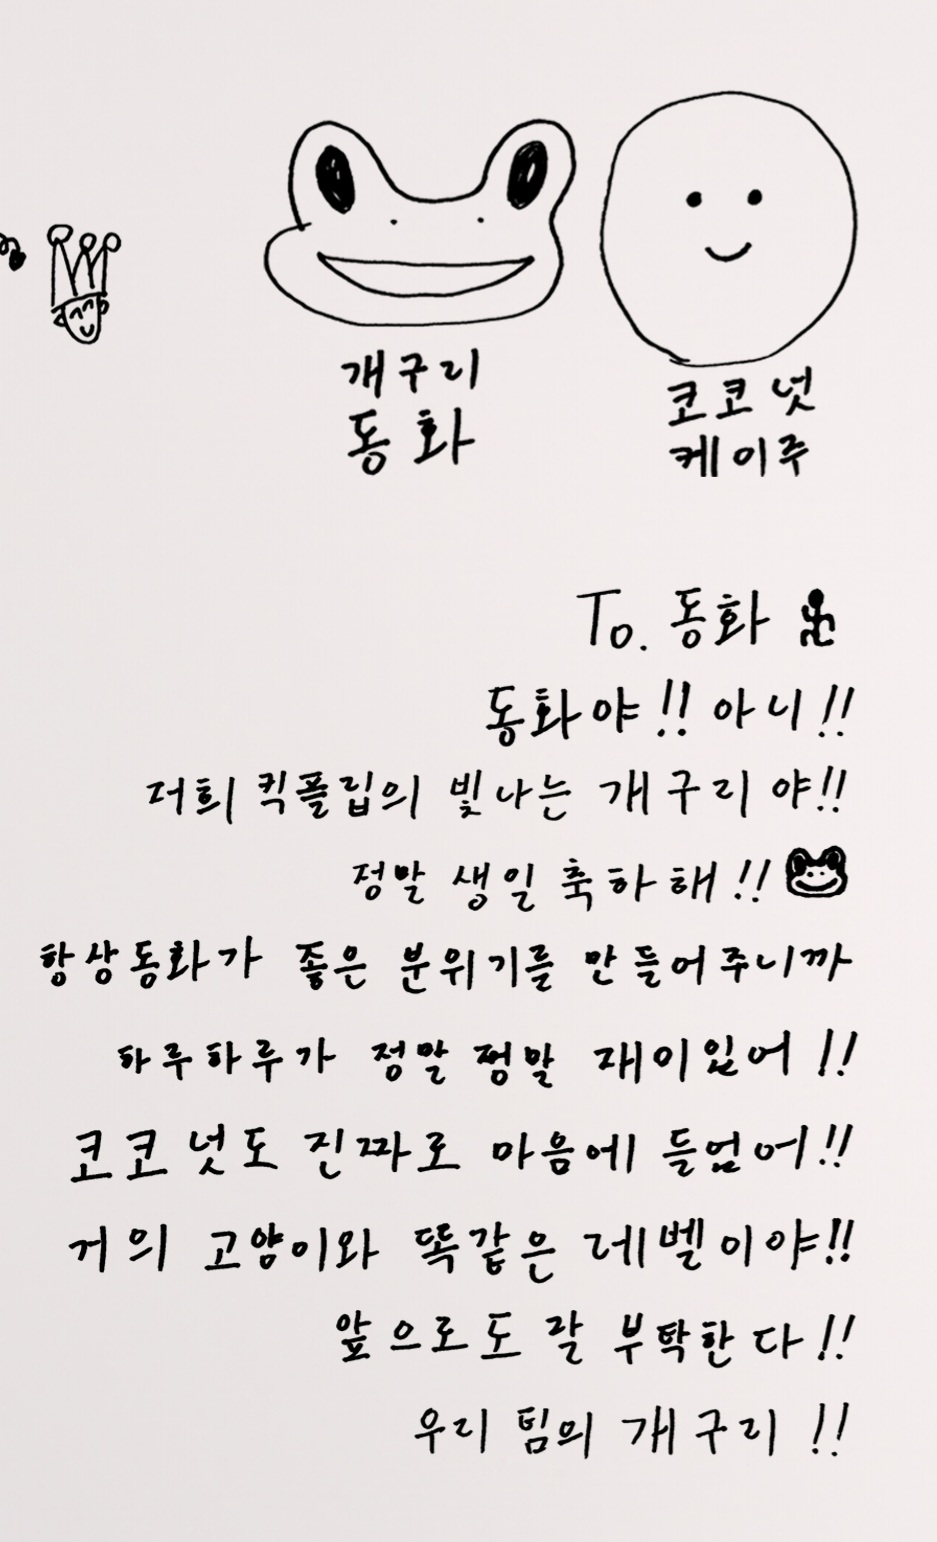 개구리
동화
코코넛
케이주
To. 동화
동화야!! 아니!!
저희 킥플립의 빛나는 개구리 야!!
정말 생일 축하해!!
항상동화가 좋은 분위기를 만들어주니까
하루하루가 정말 정말 재이있어!!
코코넛도 진짜로 마음에 들었어!!
거의 고양이와 똑같은 레벨이야!!
앞으로도 잘 부탁한다!!
우리 팀의 개구리!!